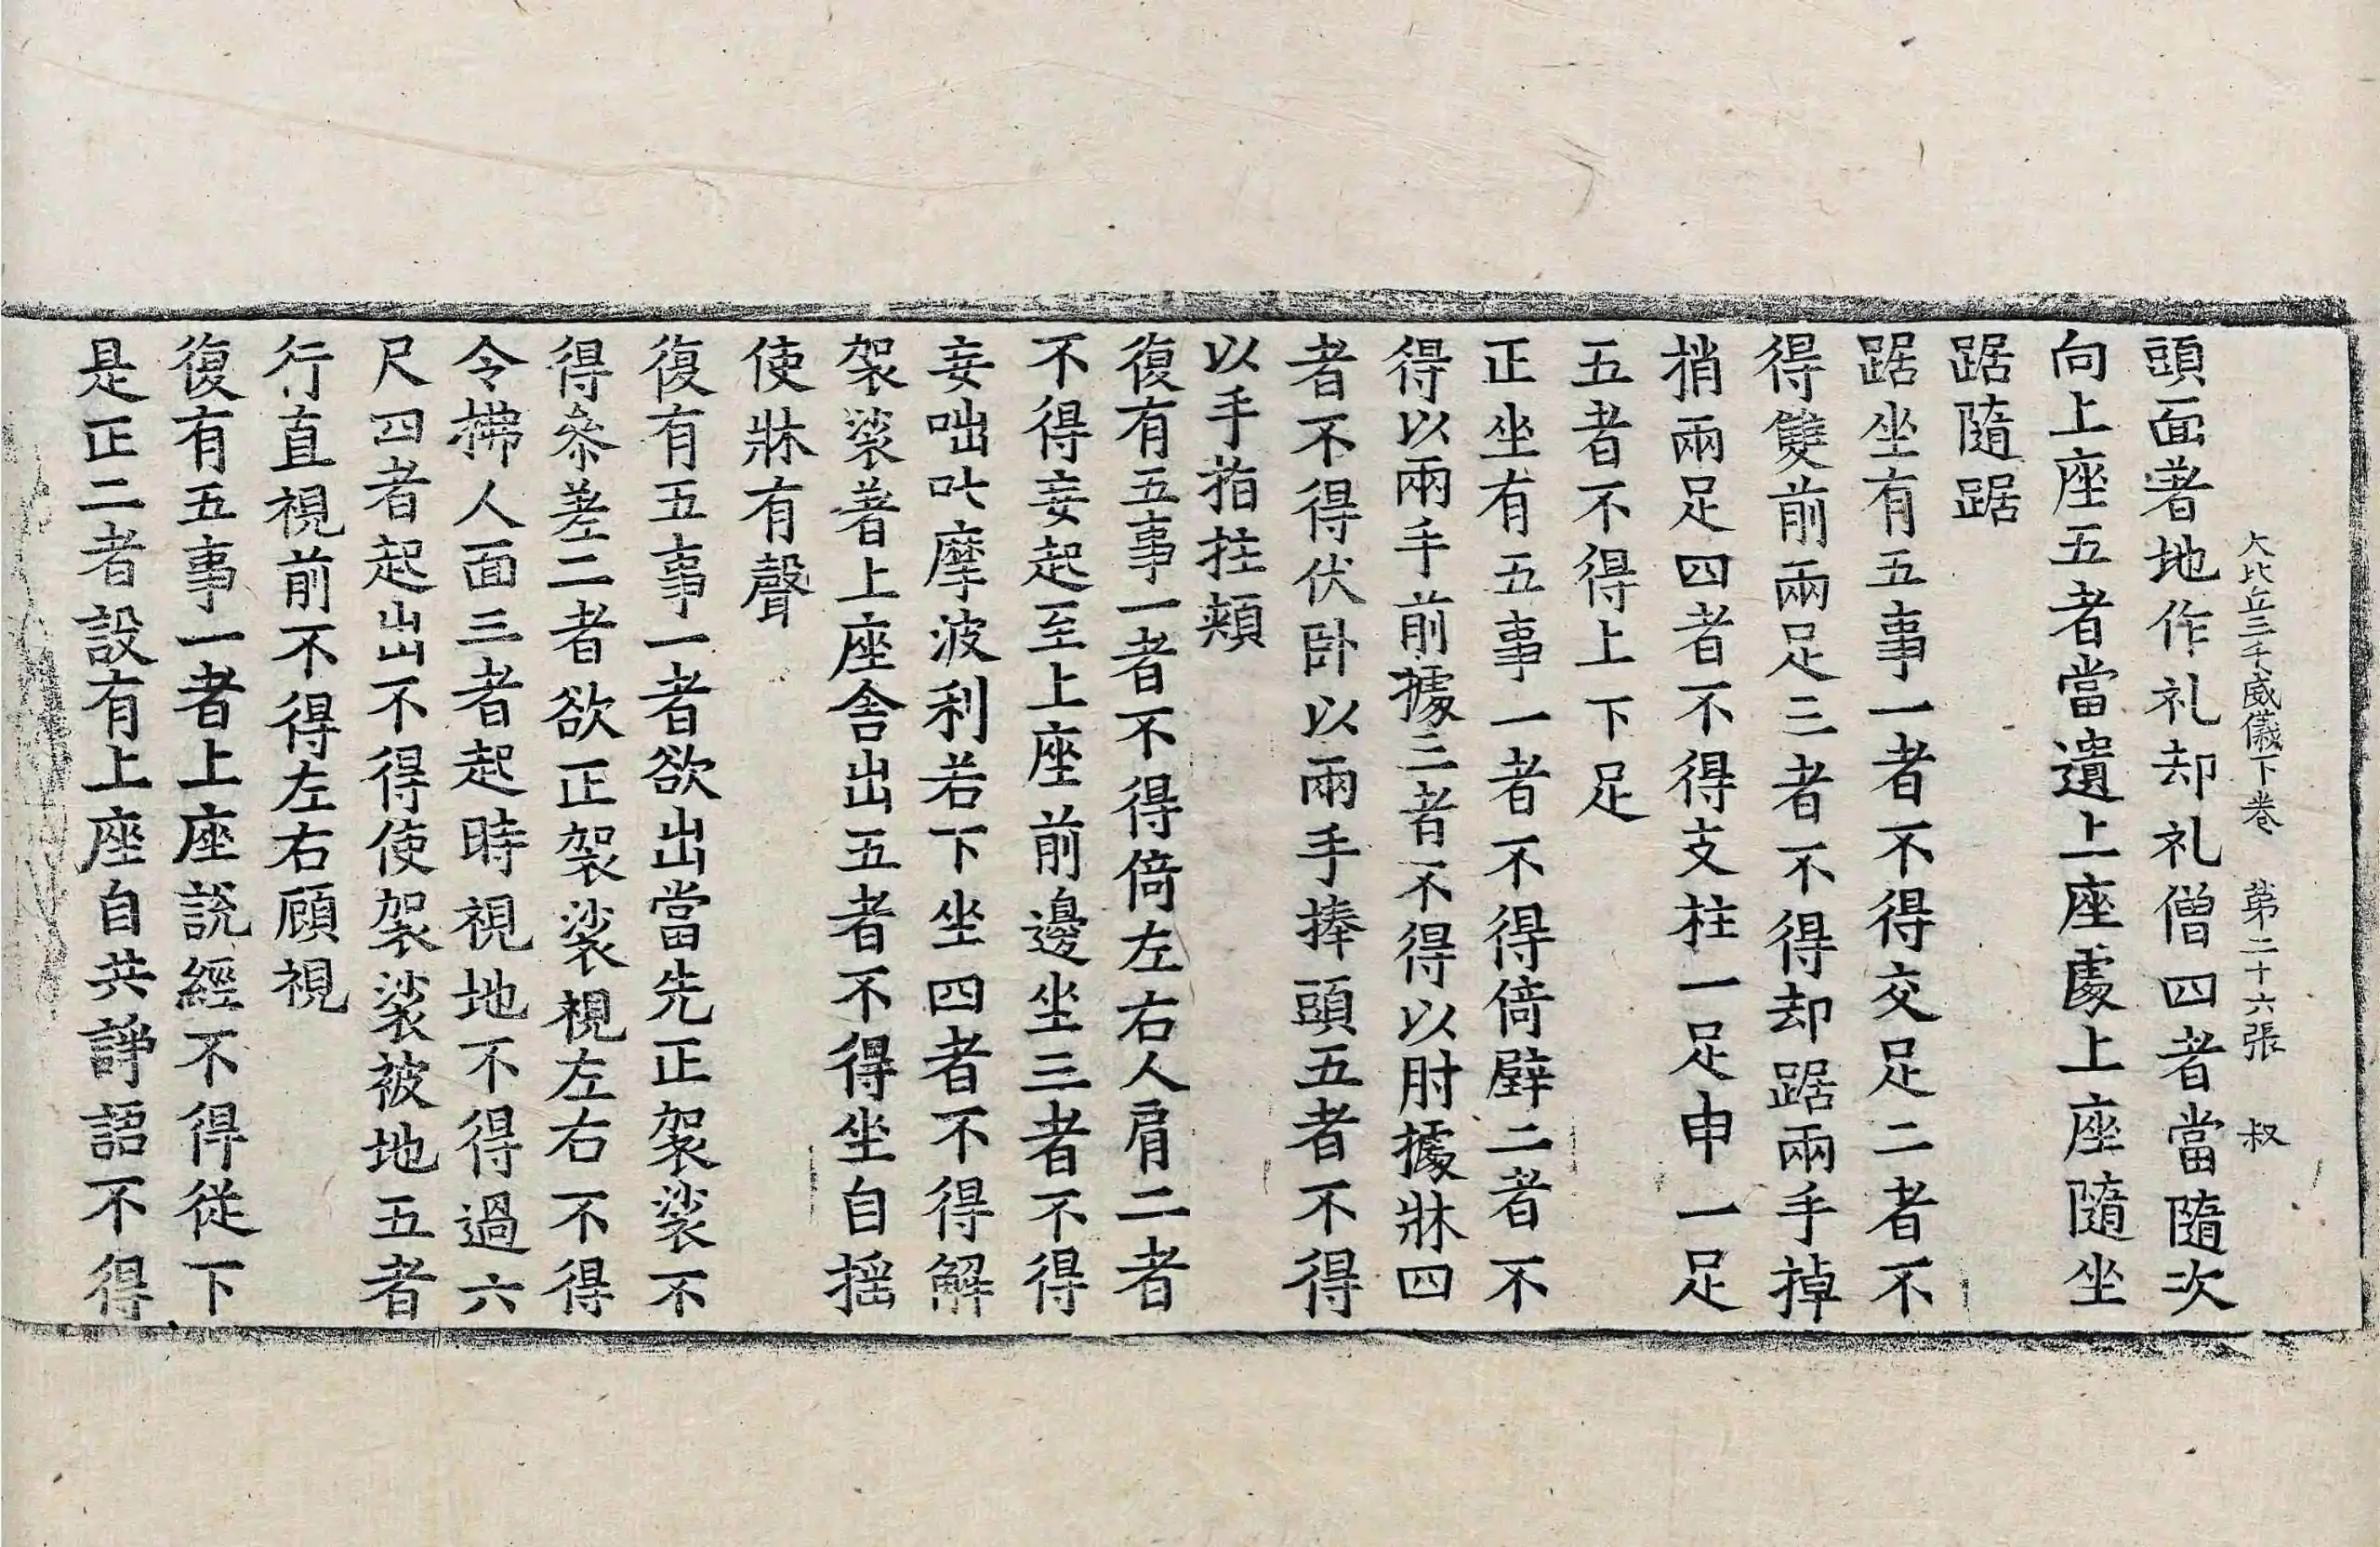 大比丘三千威儀下卷 第二十六張 叔
頭面著地作礼却礼僧四者當隨次
向上座五者當遺上座處上座隨坐
踞隨踞
踞坐有五事一者不得交足二者不
得雙前兩足三者不得却踞兩手掉
捎兩足四者不得支柱一足申一足
五者不得上下足
正坐有五事一者不得倚壁二者不
得以兩手前據三者不得以肘據牀四
者不得伏卧以兩手捧頭五者不得
以手指拄頰
復有五事一者不得倚左右人肩二者
不得妄起至上座前邊坐三者不得
妄咄叱摩波利若下坐四者不得解
袈裟著上座舍出五者不得坐自揺
使牀有聲
復有五事一者欲出當先正袈裟不
得叅差二者欲正袈裟視左右不得
令拂人面三者起時視地不得過六
尺四者起出不得使袈裟被地五者
行直視前不得左右顧視
復有五事一者上座說經不得從下
是正二者設有上座自共諍語不得